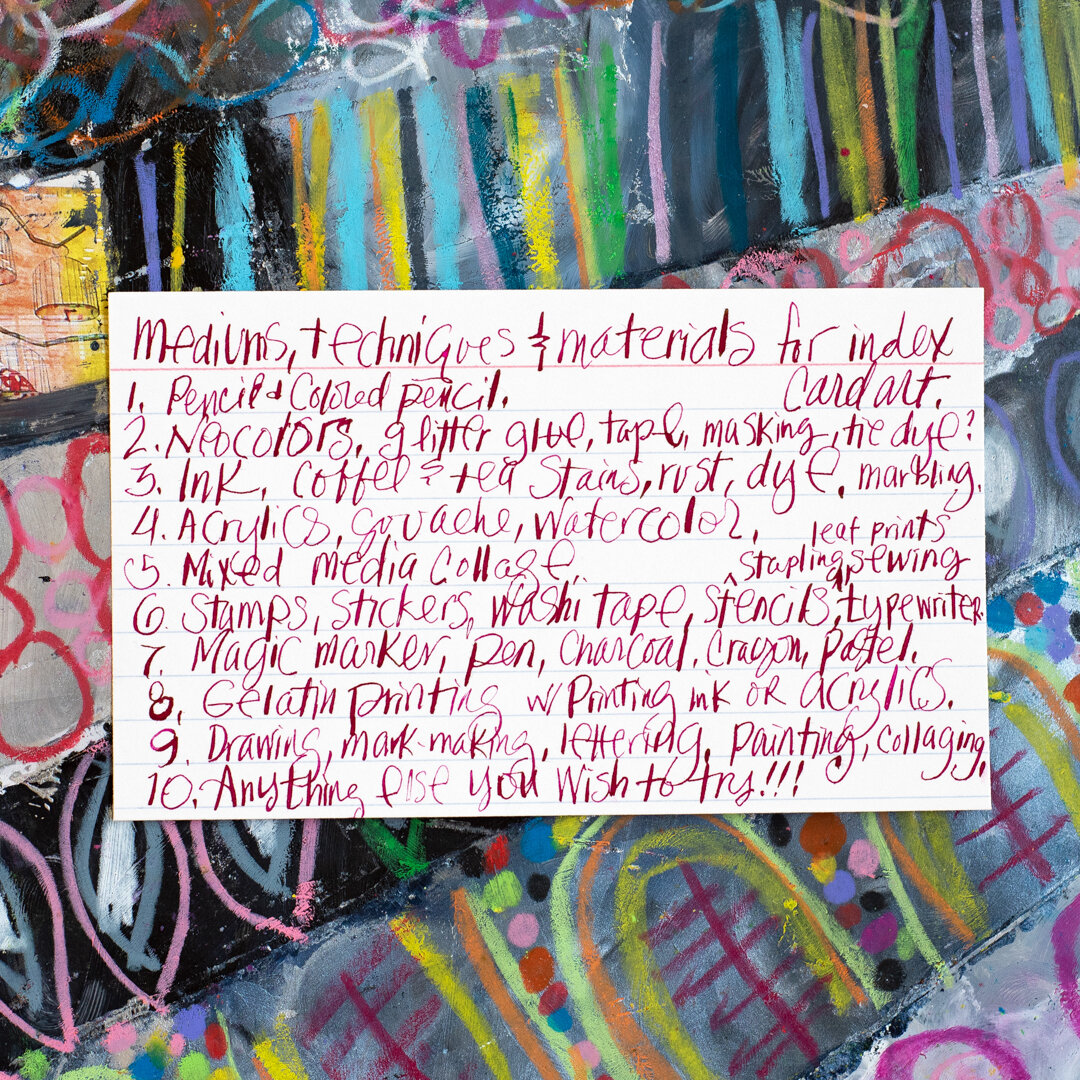 Mediums, techniques & materials for index
card art.
1. Pencil & Colored pencil.
2. Neocolors, glitter glue, tape, masking, tie dye?
3. Ink, Coffee & tea Stains, rust, dye, marbling.
4. Acrylics, gouache, watercolor,
leaf prints
5. Mixed media Collage
stapling, sewing
6. Stamps, Stickers, Washi tape, Stencils, typewriter.
7. Magic marker, pen, Charcoal, Crayon, pastel.
8. Gelatin printing w/ Printing ink or acrylics.
9. Drawing, mark-making, lettering, painting, collaging,
10. Anything else you wish to try!!!